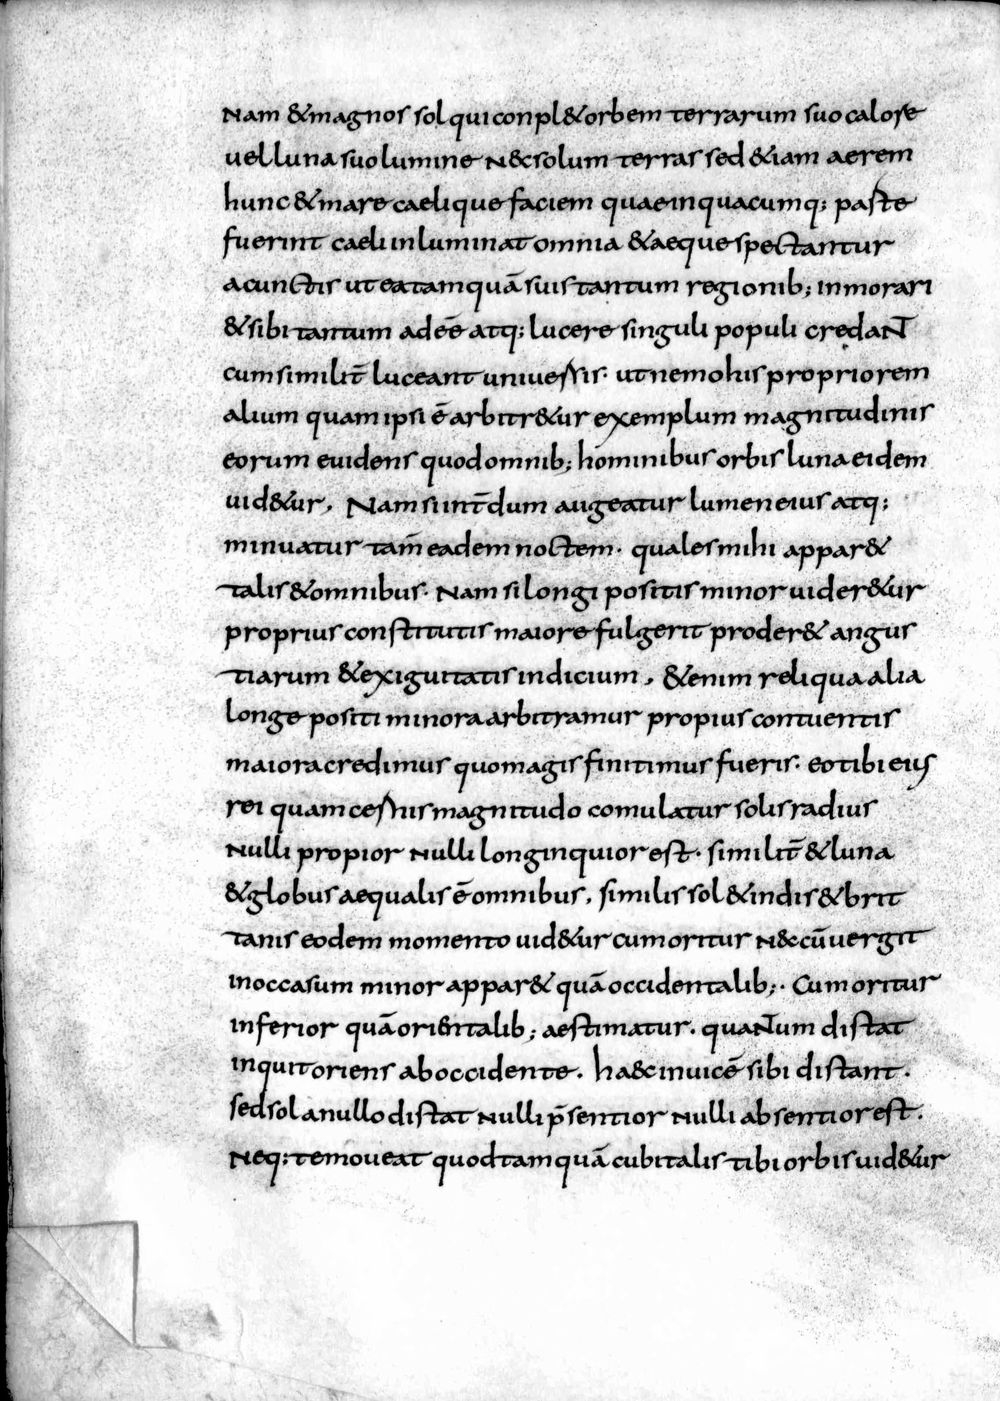 Nam & magnos sol qui conpl& orbem terrarum suo calore
uel luna suo lumine N&c solum terras sed &iam aerem
hunc & mare caelique faciem quae in quacumq; paste
fuerint caeli inluminat omnia & aeque spectantur
a cunctis ut ea tamquā suis tantum regionib; inmorari
& sibi tantum adeē atq; lucere singuli populi credaNT
cum similit̄ luceant uniuersis · ut nemo his propriorem
alium quam ipsi ē arbitr&ur exemplum magnitudinis
eorum euidens quod omnib; hominibus orbis luna eidem
uid&ur, Nam si int̄dum augeatur lumen eius atq;
minuatur tam̄ eadem noctem · quales mihi appar&
talis & omnibus · Nam si longi positis minor uider&ur
proprius constitutis maiore fulgerit proder& angus
tiarum & exiguitatis indicium, &enim reliqua alia
longe positi minora arbitramur propius contuentis
maiora credimus quo magis finitimus fueris · eo tibi eius
rei quam cernis magnitudo comulatur solis radius
Nulli propior Nulli longinquior est · similit̄ & luna
& globus aequalis ē omnibus, similis sol & indis & brit
tanis eodem momento uid&ur cum oritur N&c cū uergit
in occasum minor appar& quā occidentalib; · Cum oritur
inferior quā orientalib; aestimatur · quaNTum distat
inquit oriens ab occidente · ha&c inuicē sibi distant ·
sed sol a nullo distat Nulli p̄sentior Nulli absentior est ·
Neq; te moueat quod tamquā cubitalis tibi orbis uid&ur